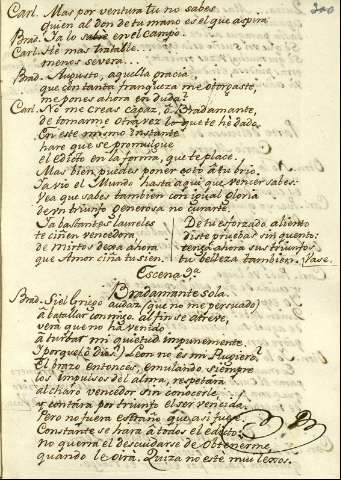 200
Carl. Mas por ventura tu no sabes
quien al don de tu mano es el que aspira
Brad. Ya lo sabre en el campo.
Carl. Hè mas tratable...
menos severa...
Brad. Augusto, aquella gracia
que con tanta franqueza me otorgaste,
me pones ahora en duda?
Carl. No me creas capàz, ò Bradamante,
de tomarme otra vez lo que te hè dado.
En este mismo instante
harè que se promulgue
el edicto en la forma, que te place.
Mas bien puedes poner coto à tu brio.
Ya vio el Mundo hasta aqui que vencer sabes:
Vea que sabes tambien con igual gloria
de un triunfo generosa no curarte.
Ya bastantes laureles
te ciñen vencedora
de mirtos dexa ahora
que Amor ciña tu sien.
De tu esforzado aliento
diste pruebas sin quento:
tenga ahora sus triunfos
tu belleza tambien. Vase.
Escena 9.a
Bradamante Sola.
Brad. Si el Griego audaz (que no me persuado)
à batallar conmigo al fin se atreve,
verà que no hà venido
à turbar mi quietud impunemente.
Y porquè (ò Dios!) Leon no es mi Rugiero?
El brazo entonces, emulando siempre
los impulsos del alma, respetara
al charo vencedor sin conocerle
y contara por triunfo el ser vencida.
Pero no fuera estraño que asi fuese
Constante se harà à todos el edicto:
no querrà el descuidarse de obtenerme,
quando le oirà. Quiza no estè muy lexos.